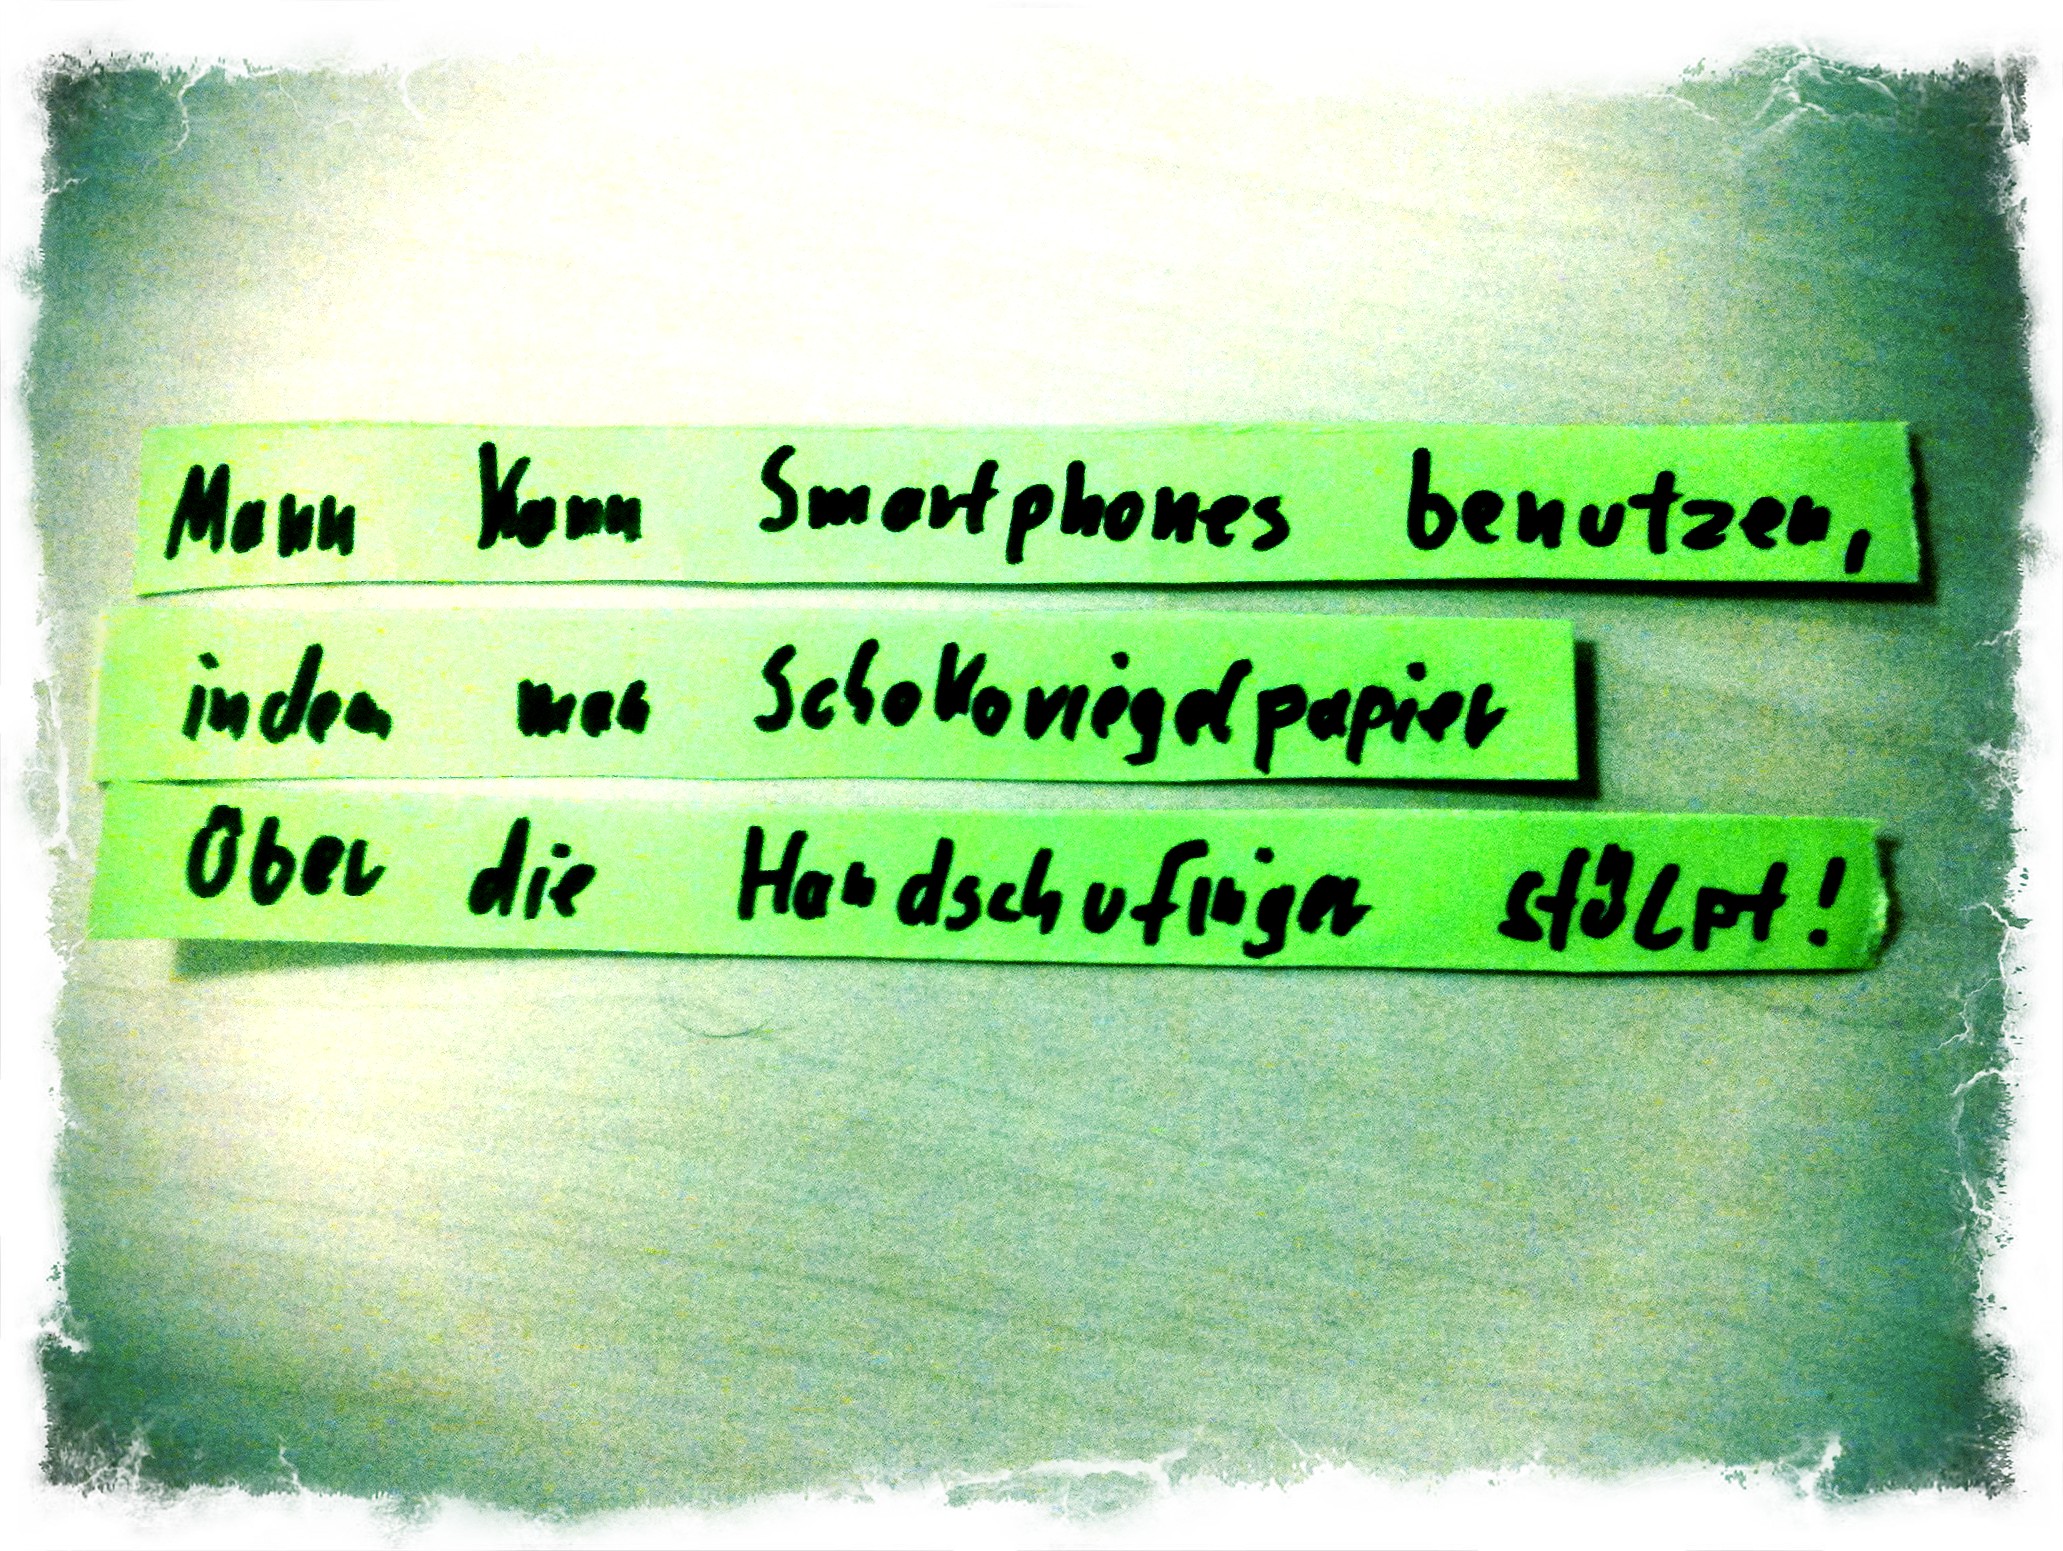 Mann kann Smartphones benutzen,
indem man Schokoriegelpapier
über die Handschufinger stülpt!